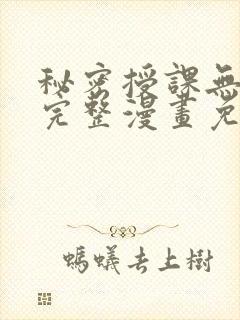 秘密授課無
完整漫畫免
螞蟻去上樹